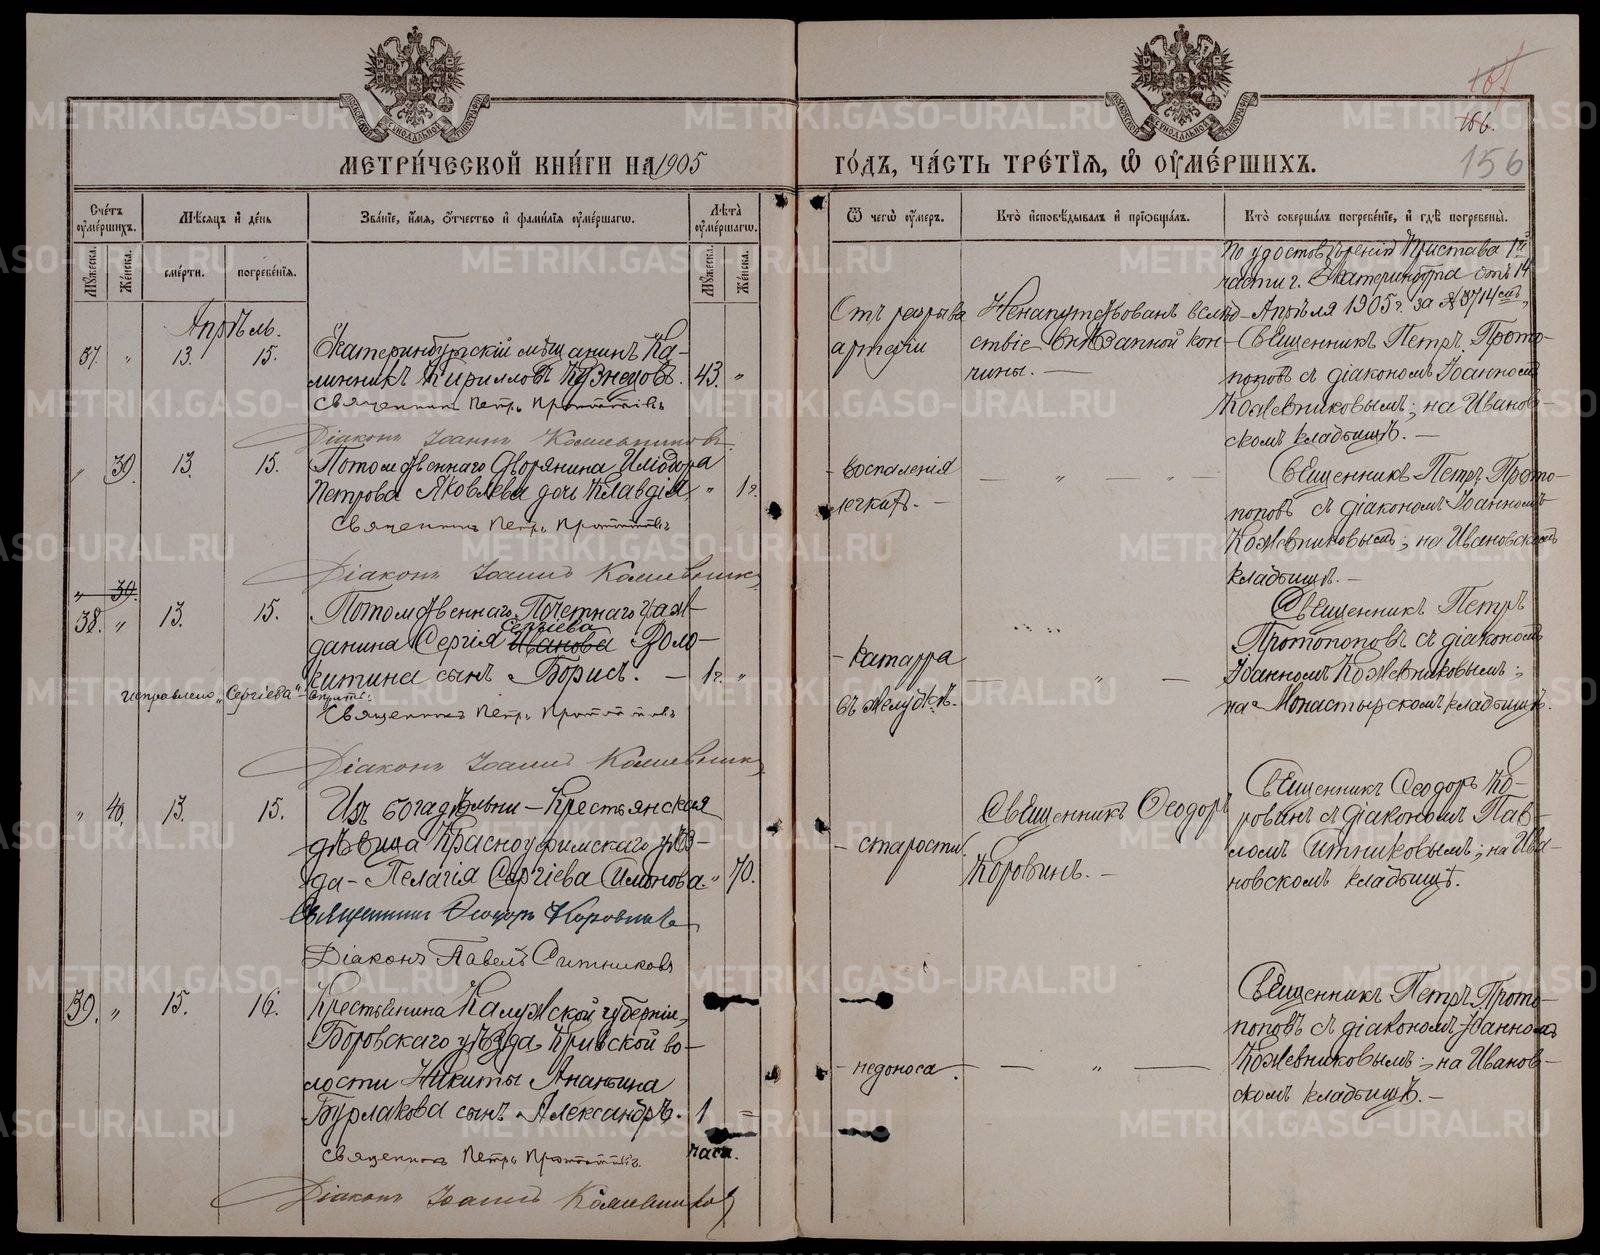 107
106.
156
МЕТРИ́ЧЕСКОЙ КНИ́ГИ НА 1905 ГО́ДЪ, ЧА́СТЬ ТРЕ́ТІЯ, Ѡ ОУМЕ́РШИХЪ.
Сче́тъ оуме́ршихъ.
Мѣ́сяцъ и де́нь
Зва́ніе, и́мя, о́тчество и фами́лія оуме́ршагѡ.
Лѣ́та оуме́ршагѡ.
Ѿ чегѡ̀ оу́меръ.
Кто̀ исповѣ́дывалъ и пріобща́лъ.
Кто̀ соверша́лъ погребе́ніе, и гдѣ̀ погребены̀.
Му́жеска.
Же́нска.
сме́рти.
погребе́нія.
Му́жеска.
Же́нска.
Апрѣль.
37. „ 13. 15.
Екатеринбургскій мѣщанинъ Ка-
линникъ Кирилловъ Кузнецовъ. 43. „
Священникъ Петръ Протопоповъ
Діаконъ Іоаннъ Кожевниковъ
Отъ разрыва
артеріи
Ненапутствованъ вслѣд-
ствіе внезапной кон-
чины. —
По удостовѣренію Пристава 1й
части г. Екатеринбурга отъ 14
Апрѣля 1905 г. за № 3714
Священникъ Петръ Прото-
поповъ съ діакономъ Іоанномъ
Кожевниковымъ; на Иванов-
скомъ кладбищѣ. —
„ 39. 13. 15.
Потомственнаго Дворянина Иліодора
Петрова Яковлева дочь Клавдія. „ 1 г.
Священникъ Петръ Протопоповъ
Діаконъ Іоаннъ Кожевник
- воспаленія
легкихъ. —
— „ — „ —
Священникъ Петръ Прото-
поповъ съ діакономъ Іоанномъ
Кожевниковымъ; на Ивановскомъ
кладбищѣ. —
„ 39.
38. „ 13. 15.
Потомственнаго Почетнаго Граж-
Сергіева
данина Сергія Иванова Воло-
китина сынъ Борисъ. — 1 г. „
исправлено „Сергіева"
Священникъ Петръ Протопоповъ
Діаконъ Іоаннъ Кожевник
- катарра
въ желудкѣ.
— „ —
Священникъ Петръ
Протопоповъ съ діакономъ
Іоанномъ Кожевниковымъ;
на Монастырскомъ кладбищѣ.
„ 40. 13. 15.
Изъ богадѣльни — Крестьянская
дѣвица Красноуфимскаго уѣз-
да — Пелагія Сергіева Симонова. „ 70.
Священникъ Ѳеодоръ Коровинъ
Діаконъ Павелъ Ситниковъ
- старости.
Священникъ Ѳеодоръ
Коровинъ. —
Священникъ Ѳеодоръ Ко-
ровинъ съ діакономъ Пав-
ломъ Ситниковымъ; на Ива-
новскомъ кладбищѣ.
39. „ 15. 16.
Крестьянина Калужской губерніи,
Боровскаго уѣзда, Кривской во-
лости Никиты Ананьина
Бурлакова сынъ Александръ. 1 —
часъ.
Священникъ Петръ Протопоповъ
Діаконъ Іоаннъ Кожевников
- недоноса.
— „ —
Священникъ Петръ Прото-
поповъ съ діакономъ Іоанномъ
Кожевниковымъ; на Иванов-
скомъ кладбищѣ. —
METRIKI.GASO-URAL.RU